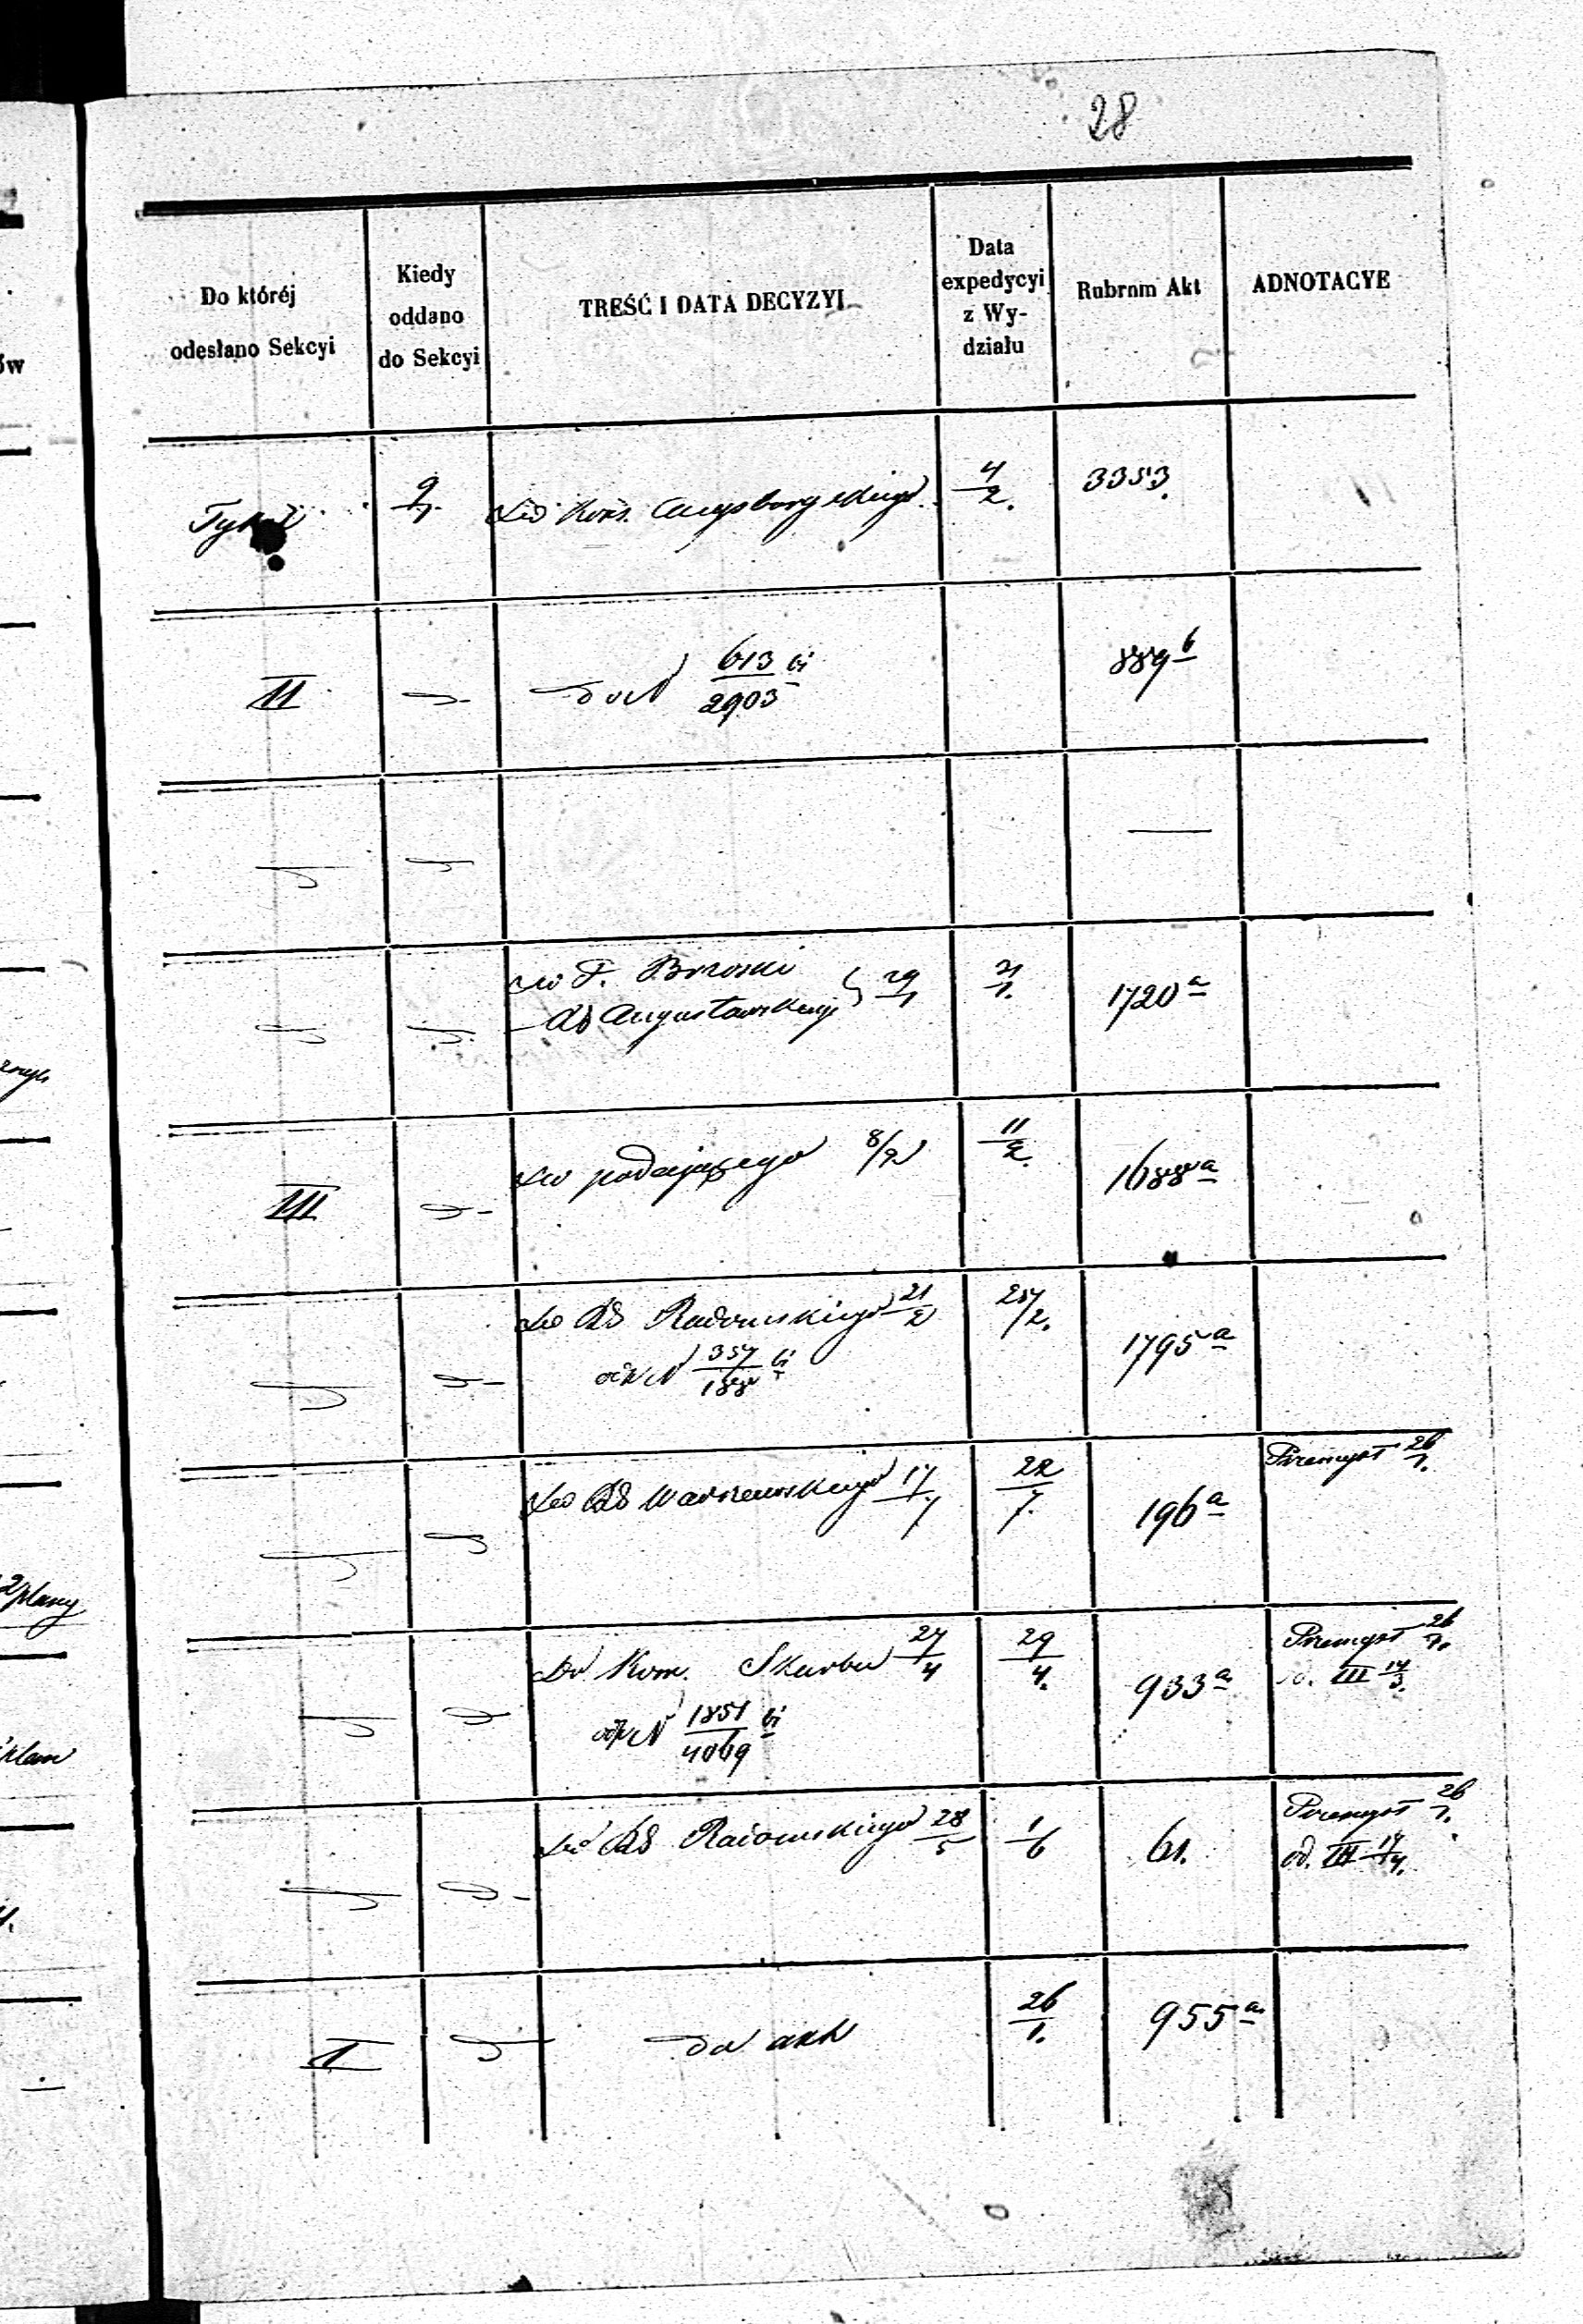 28
Do któréj
odesłano Sekcyi
Kiedy
oddano
do Sekcyi
TREŚĆ I DATA DECYZYI
Data
expedycyi
z Wy-
działu
Rubrum Akt
ADNOTACYE
9/1.
Do
4/2.
3353.
II
do N 613/2903
889 b
Do F. Brzoski
Augustowskiego 29/1
1720 a
III
Do podającego 8/2
11/2.
1688 a
Do Radomskiego 21/2
N 357/188
1795 a
Do Warszawskiego 17/7
22/7.
196 a
Przemysł 26/1.
Do Kom. Skarbu 27/4
N 1851/4069
29/4.
933 a
Przemysł 26/1.
III 14/3.
Do Radomskiego 28/5
1/6
61.
Przemysł 26/1.
od. III 17/4.
I
do akt
26/1.
955 a
plany
plan